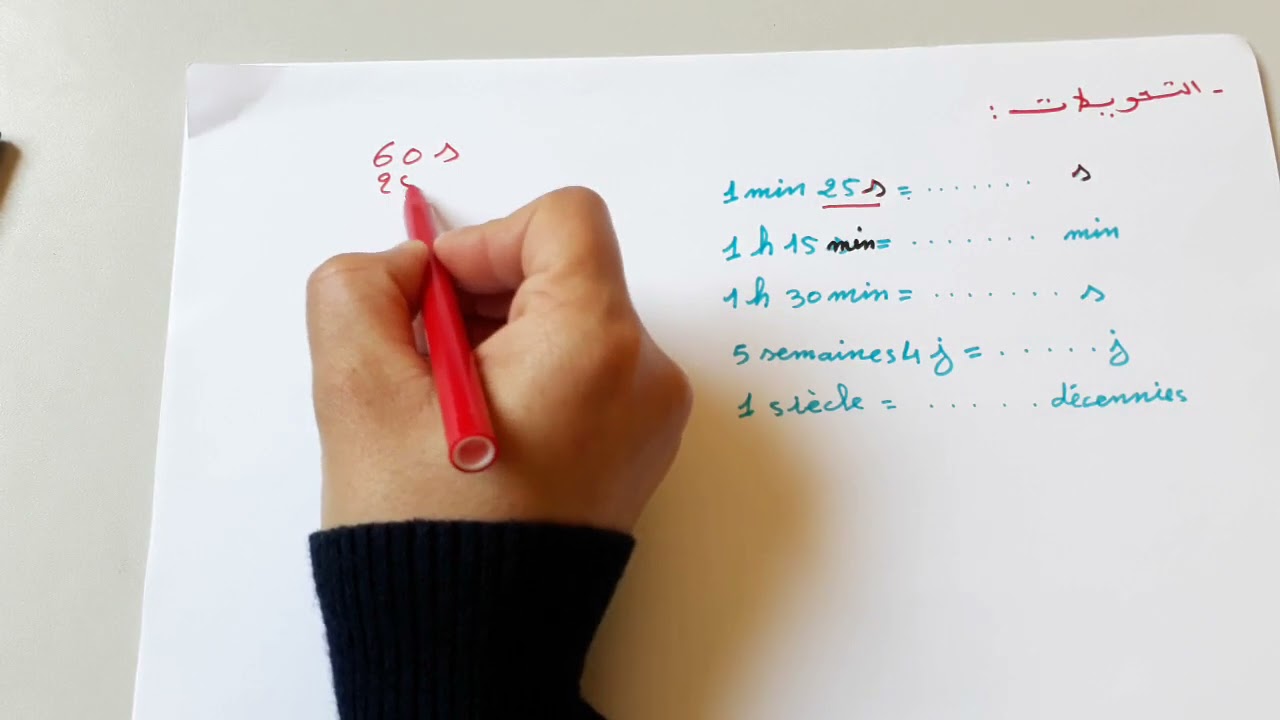 - التحويلات :
60 s
25
1 min 25 s = ....... s
1 h 15 min = ....... min
1 h 30 min = ....... s
5 semaines 4 j = ..... j
1 siècle = ..... décennies